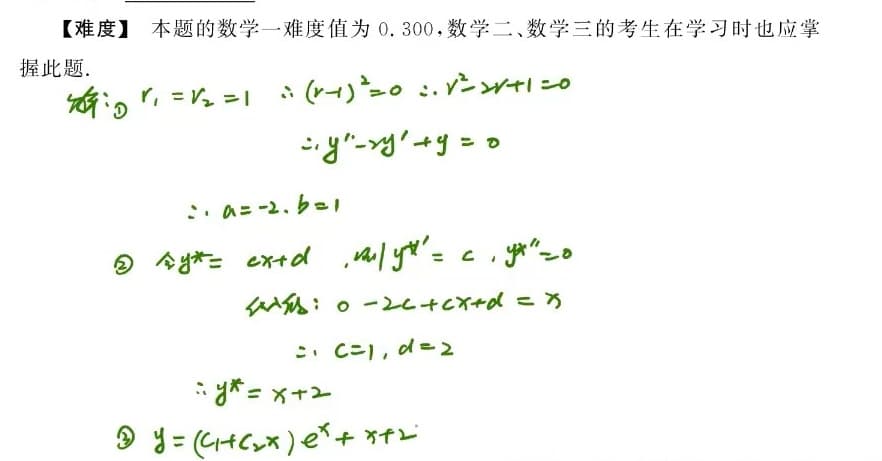 【难度】 本题的数学一难度值为 0.300,数学二、数学三的考生在学习时也应掌
握此题.
解:① r₁ = r₂ = 1 ∴ (r-1)² = 0 ∴ r² - 2r + 1 = 0
∴ y'' - 2y' + y = 0
∴ a = -2、b = 1
② 令y* = cx+d ,则 y*' = c , y*'' = 0
代入得: 0 - 2c + cx + d = x
∴ c = 1 , d = 2
∴ y* = x + 2
③ y = (C₁+C₂x) eˣ + x+2